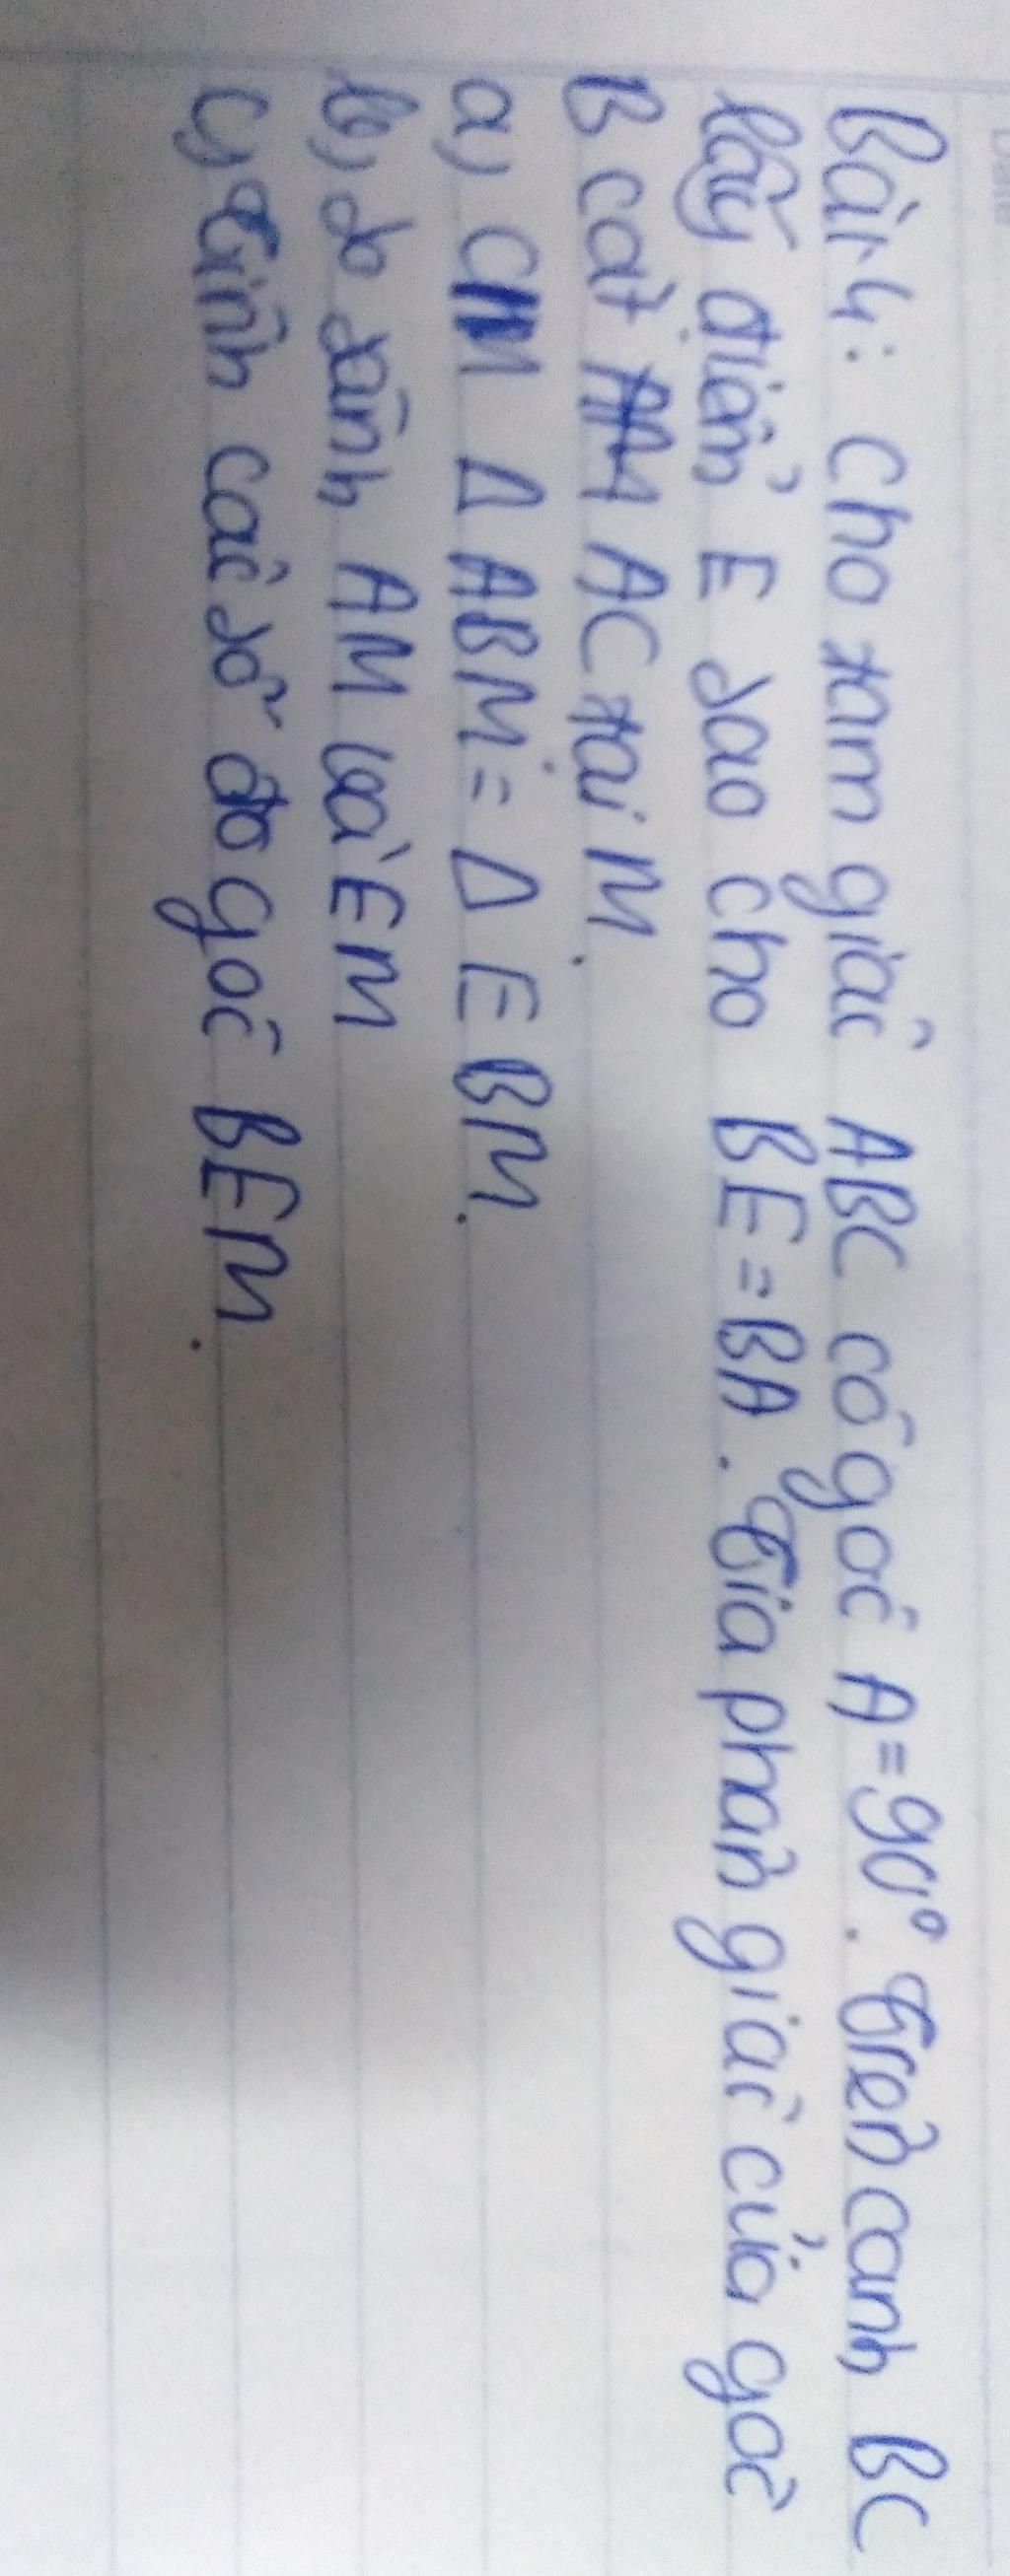 Bài 4: Cho tam giác ABC có góc A = 90°. Trên cạnh BC
lấy điểm E sao cho BE = BA. Tia phân giác của góc
B cắt AC tại M.
a, CM Δ ABM = Δ EBM.
b, so sánh AM và EM
c, Tính các số đo góc BEM.